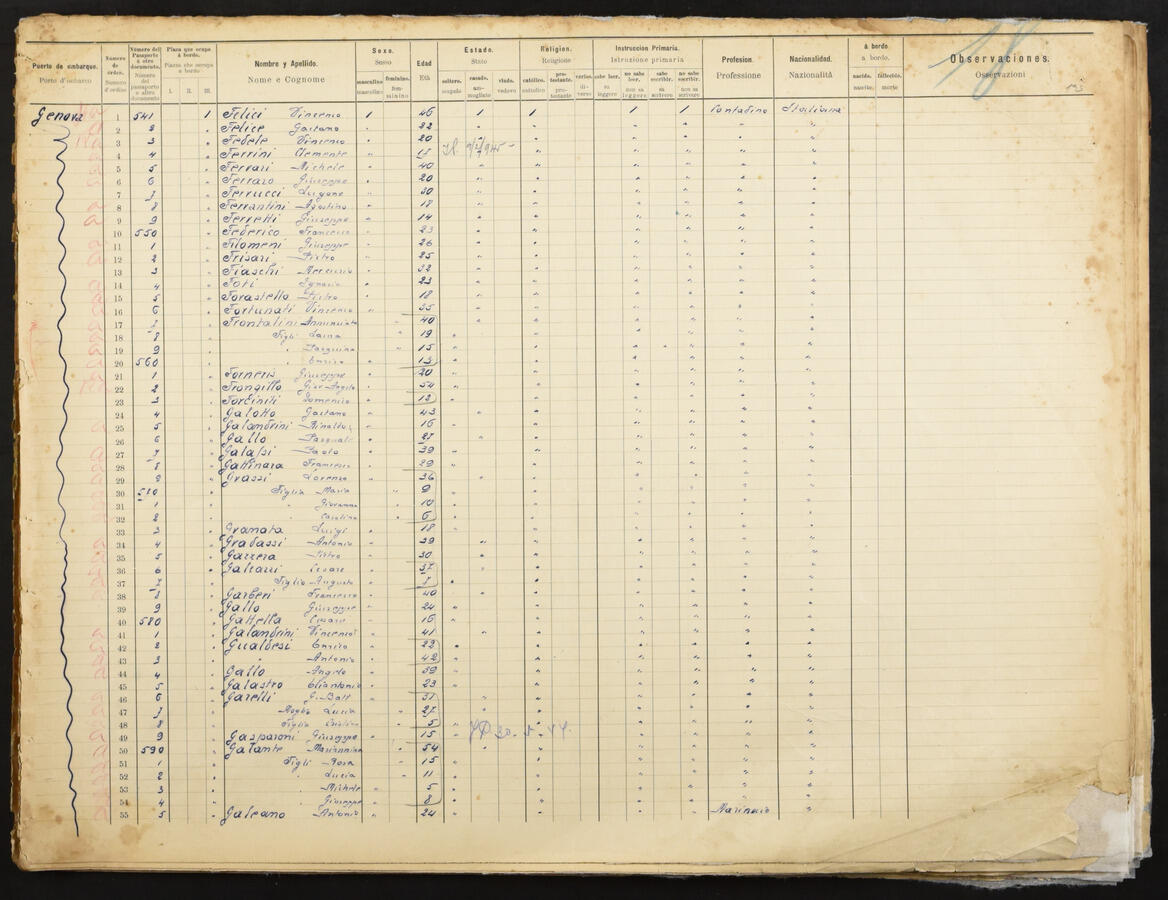 18
Puerto de embarque. Porto d'embarco
Número de orden. Numero d'ordine
Número del Pasaporte ú otro documento. Número del passaporto o altro documento
Plaza que ocupa á bordo. Piazza che occupa a bordo I. II. III.
Nombre y Apellido. Nome e Cognome
Sexo. Sesso masculino maschile femenino. femminino
Edad Età
Estado. Stato soltero. scapolo casado. ammogliato viudo. vedovo
Religion. Religione católico. cattolico protestante. protestante varios. diversi
Instruccion Primaria. Istruzione primaria sabe leer. sa leggere no sabe leer. non sa leggere sabe escribir. sa scrivere no sabe escribir. non sa scrivere
Profesion. Professione
Nacionalidad. Nazionalità
á bordo a bordo. nacido. nascite. fallecido. morte
Observaciones. Osservazioni
Genova 1 541 1 Felici Vincenzo 1 46 1 1 1 1 Contadino Italiana
2 2 Felice Gaetano 22
3 3 Fedele Vincenzo 20
4 4 Ferrini Clemente
5 5 Ferrari Michele 40
6 6 Ferraro Giuseppe 20
7 7 Ferrucci 30
8 8 Ferrantini Agostino 18
9 9 Ferretti Giuseppe 14
10 550 Federico Francesco 23
11 1 Filomeni Giuseppe 26
12 2 Frisari Pietro 25
13 3 Fiaschi 32
14 4 Foti Ignazio 23
15 5 Forastello Pietro 18
16 6 Fortunati Vincenzo 35
17 7 Frontalini Annunziata 40
18 8 Figli 19
19 9 Pasquina 15
20 560 Enrico 13
21 1 Forneris Giuseppe 20
22 2 Frongillo Gior Angelo 54
23 3 Forciniti Domenico 12
24 4 Galotto Gaetano 43
25 5 Galandrini Rinaldo 16
26 6 Gallo Pasquale 27
27 7 Galassi Paolo 39
28 8 Gattinara Francesco 29
29 9 Grassi Lorenzo 36
30 570 Figlia Maria 9
31 1 Giovanna 10
32 2 Carolina 6
33 3 Granata Luigi 18
34 4 Gradassi Antonio 39
35 5 Garrera Pietro 30
36 6 Galeazzi Cesare 37
37 7 Figlio Augusto 7
38 8 Garberi Francesco 40
39 9 Gallo Giuseppe 24
40 580 Gattella Cesare 16
41 1 Galandrini Vincenzo 41
42 2 Gualdesi Enrico 22
43 3 Antonio 42
44 4 Gallo Angelo 39
45 5 Galastro Eliantonio 23
46 6 Garelli G. Batt 31
47 7 Moglie Lucia 27
48 8 Figlia 5
49 9 Gasparoni Giuseppe 15
50 590 Galante Mariannina 54
51 1 Figli Rosa 15
52 2 Lucia 11
53 3 Michele 5
54 4 Giuseppe 8
55 5 Galeano Antonio 24 Marinaio